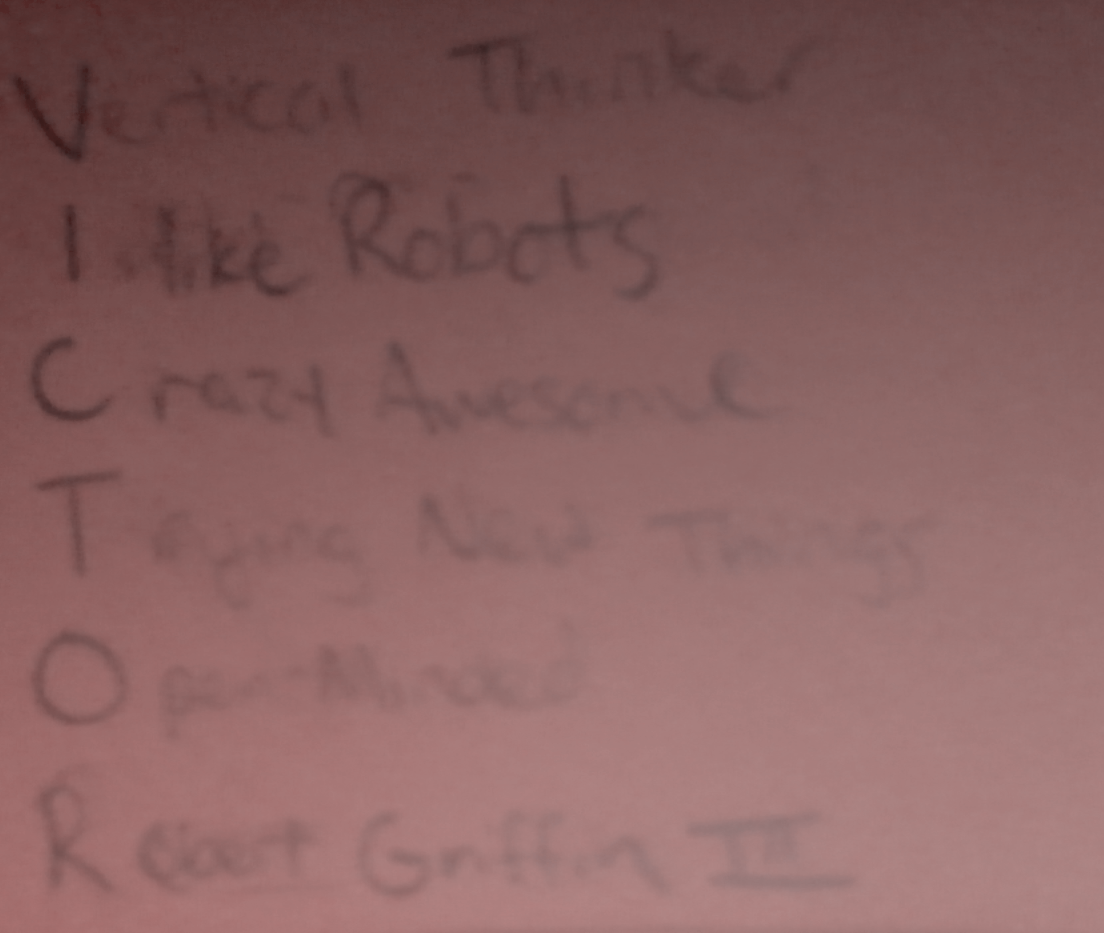 Vertical Thinker
I like Robots
Crazy Awesome
Trying New Things
Open-Minded
Robert Griffin III